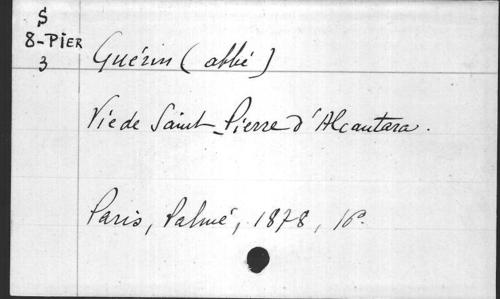 S
8-PIER
3
Guérin (abbé)
Vie de Saint-Pierre d'Alcantara.
Paris, Palmé, 1878, 16º.